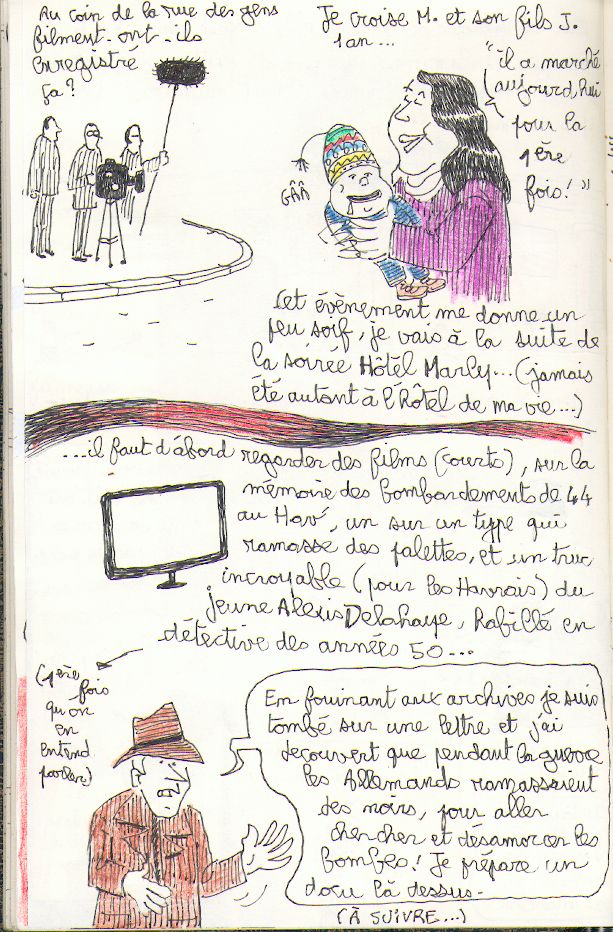 Au coin de la rue des gens
filment. ont-ils
enregistré
ça?
Je croise M. et son fils J.
1 an...
"il a marché
aujourd'hui
pour la
1ère
fois!"
GÂÂ
Cet évènement me donne un
peu soif, je vais à la suite de
la soirée Hôtel Marly... (jamais
été autant à l'hôtel de ma vie...)
...il faut d'abord regarder des films (courts), sur la
mémoire des bombardements de 44
au Hav', un sur un type qui
ramasse des palettes, et un truc
incroyable (pour les Havrais) du
jeune Alexis Delahaye, habillé en
détective des années 50...
(1ère fois
qu'on
en
entend
parler)
En fouinant aux archives je suis
tombé sur une lettre et j'ai
découvert que pendant la guerre
les Allemands ramassaient
des noirs, pour aller
chercher et désamorcer les
bombes! Je prépare un
docu là dessus-
(À SUIVRE...)